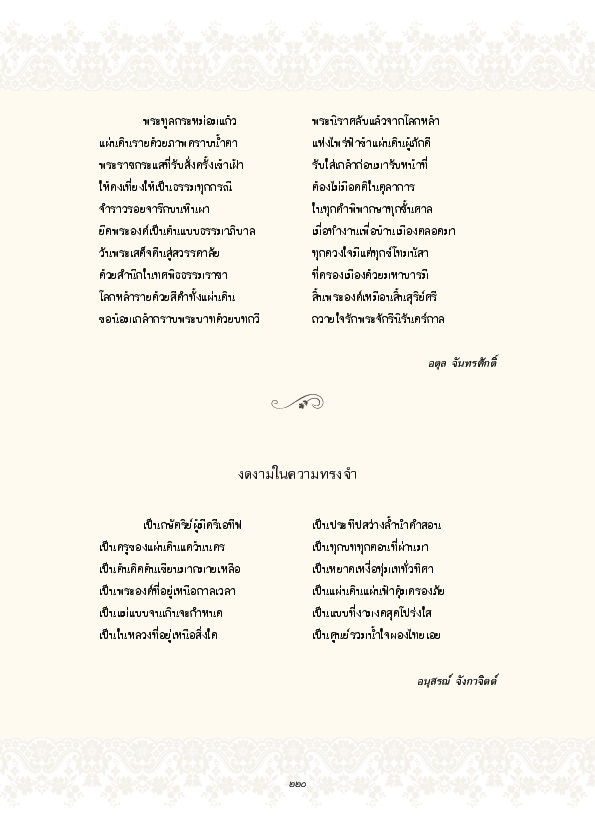 พระทูลกระหม่อมแก้ว พระนิราศลับแล้วจากโลกหล้า
แผ่นดินรายด้วยภาพคราบน้ำตา แห่งไพร่ฟ้าข้าแผ่นดินผู้ภักดี
พระราชกระแสที่รับสั่งครั้งเข้าเฝ้า รับใส่เกล้าก่อนมารับหน้าที่
ให้คงเที่ยงให้เป็นธรรมทุกกรณี ต้องไม่มีอคติในตุลาการ
จำราวรอยจารึกบนหินผา ในทุกคำพิพากษาทุกชั้นศาล
ยึดพระองค์เป็นต้นแบบธรรมาภิบาล เพื่อทำงานเพื่อบ้านเมืองตลอดมา
วันพระเสด็จคืนสู่สวรรคาลัย ทุกดวงใจมีแต่ทุกข์โทมนัสา
ด้วยสำนึกในทศพิธธรรมราชา ที่ครองเมืองด้วยมหาบารมี
โลกหล้ารายด้วยสีดำทั้งแผ่นดิน สิ้นพระองค์เหมือนสิ้นสุริย์ศรี
ขอน้อมเกล้ากราบพระบาทด้วยบทกวี ถวายใจรักพระจักรีนิรันดร์กาล
อดุล จันทรศักดิ์
งดงามในความทรงจำ
เป็นกษัตริย์ผู้มีครีเอทีฟ เป็นประทีปสว่างล้ำนำคำสอน
เป็นครูของแผ่นดินแดว้นนคร เป็นทุกบททุกตอนที่ผ่านมา
เป็นต้นคิดค้นเขียนมากมายเหลือ เป็นหยาดเหงื่อทุ่มเททั่วทิศา
เป็นพระองค์ที่อยู่เหนือกาลเวลา เป็นแผ่นดินแผ่นฟ้าคุ้มครองภัย
เป็นแม่แบบจนเกินจะกำหนด เป็นแบบที่งามงดสุดโปร่งใส
เป็นในหลวงที่อยู่เหนือสิ่งใด เป็นศูนย์รวมน้ำใจผองไทยเอย
อนุสรณ์ จังกาจิตต์
๒๒๐